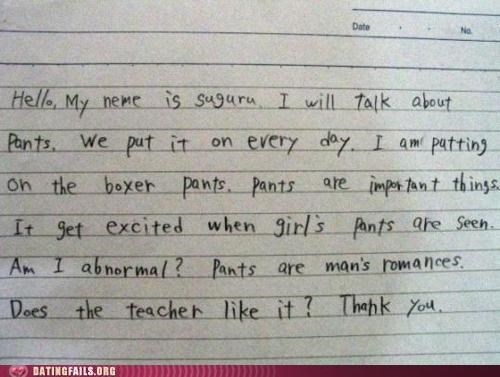 Date . . No.
Hello, My neme is suguru. I will talk about
Pants. We put it on every day. I am putting
on the boxer pants. pants are important things.
It get excited when girl's pants are seen.
Am I abnormal? Pants are man's romances.
Does the teacher like it? Thank you.
DATINGFAILS.ORG